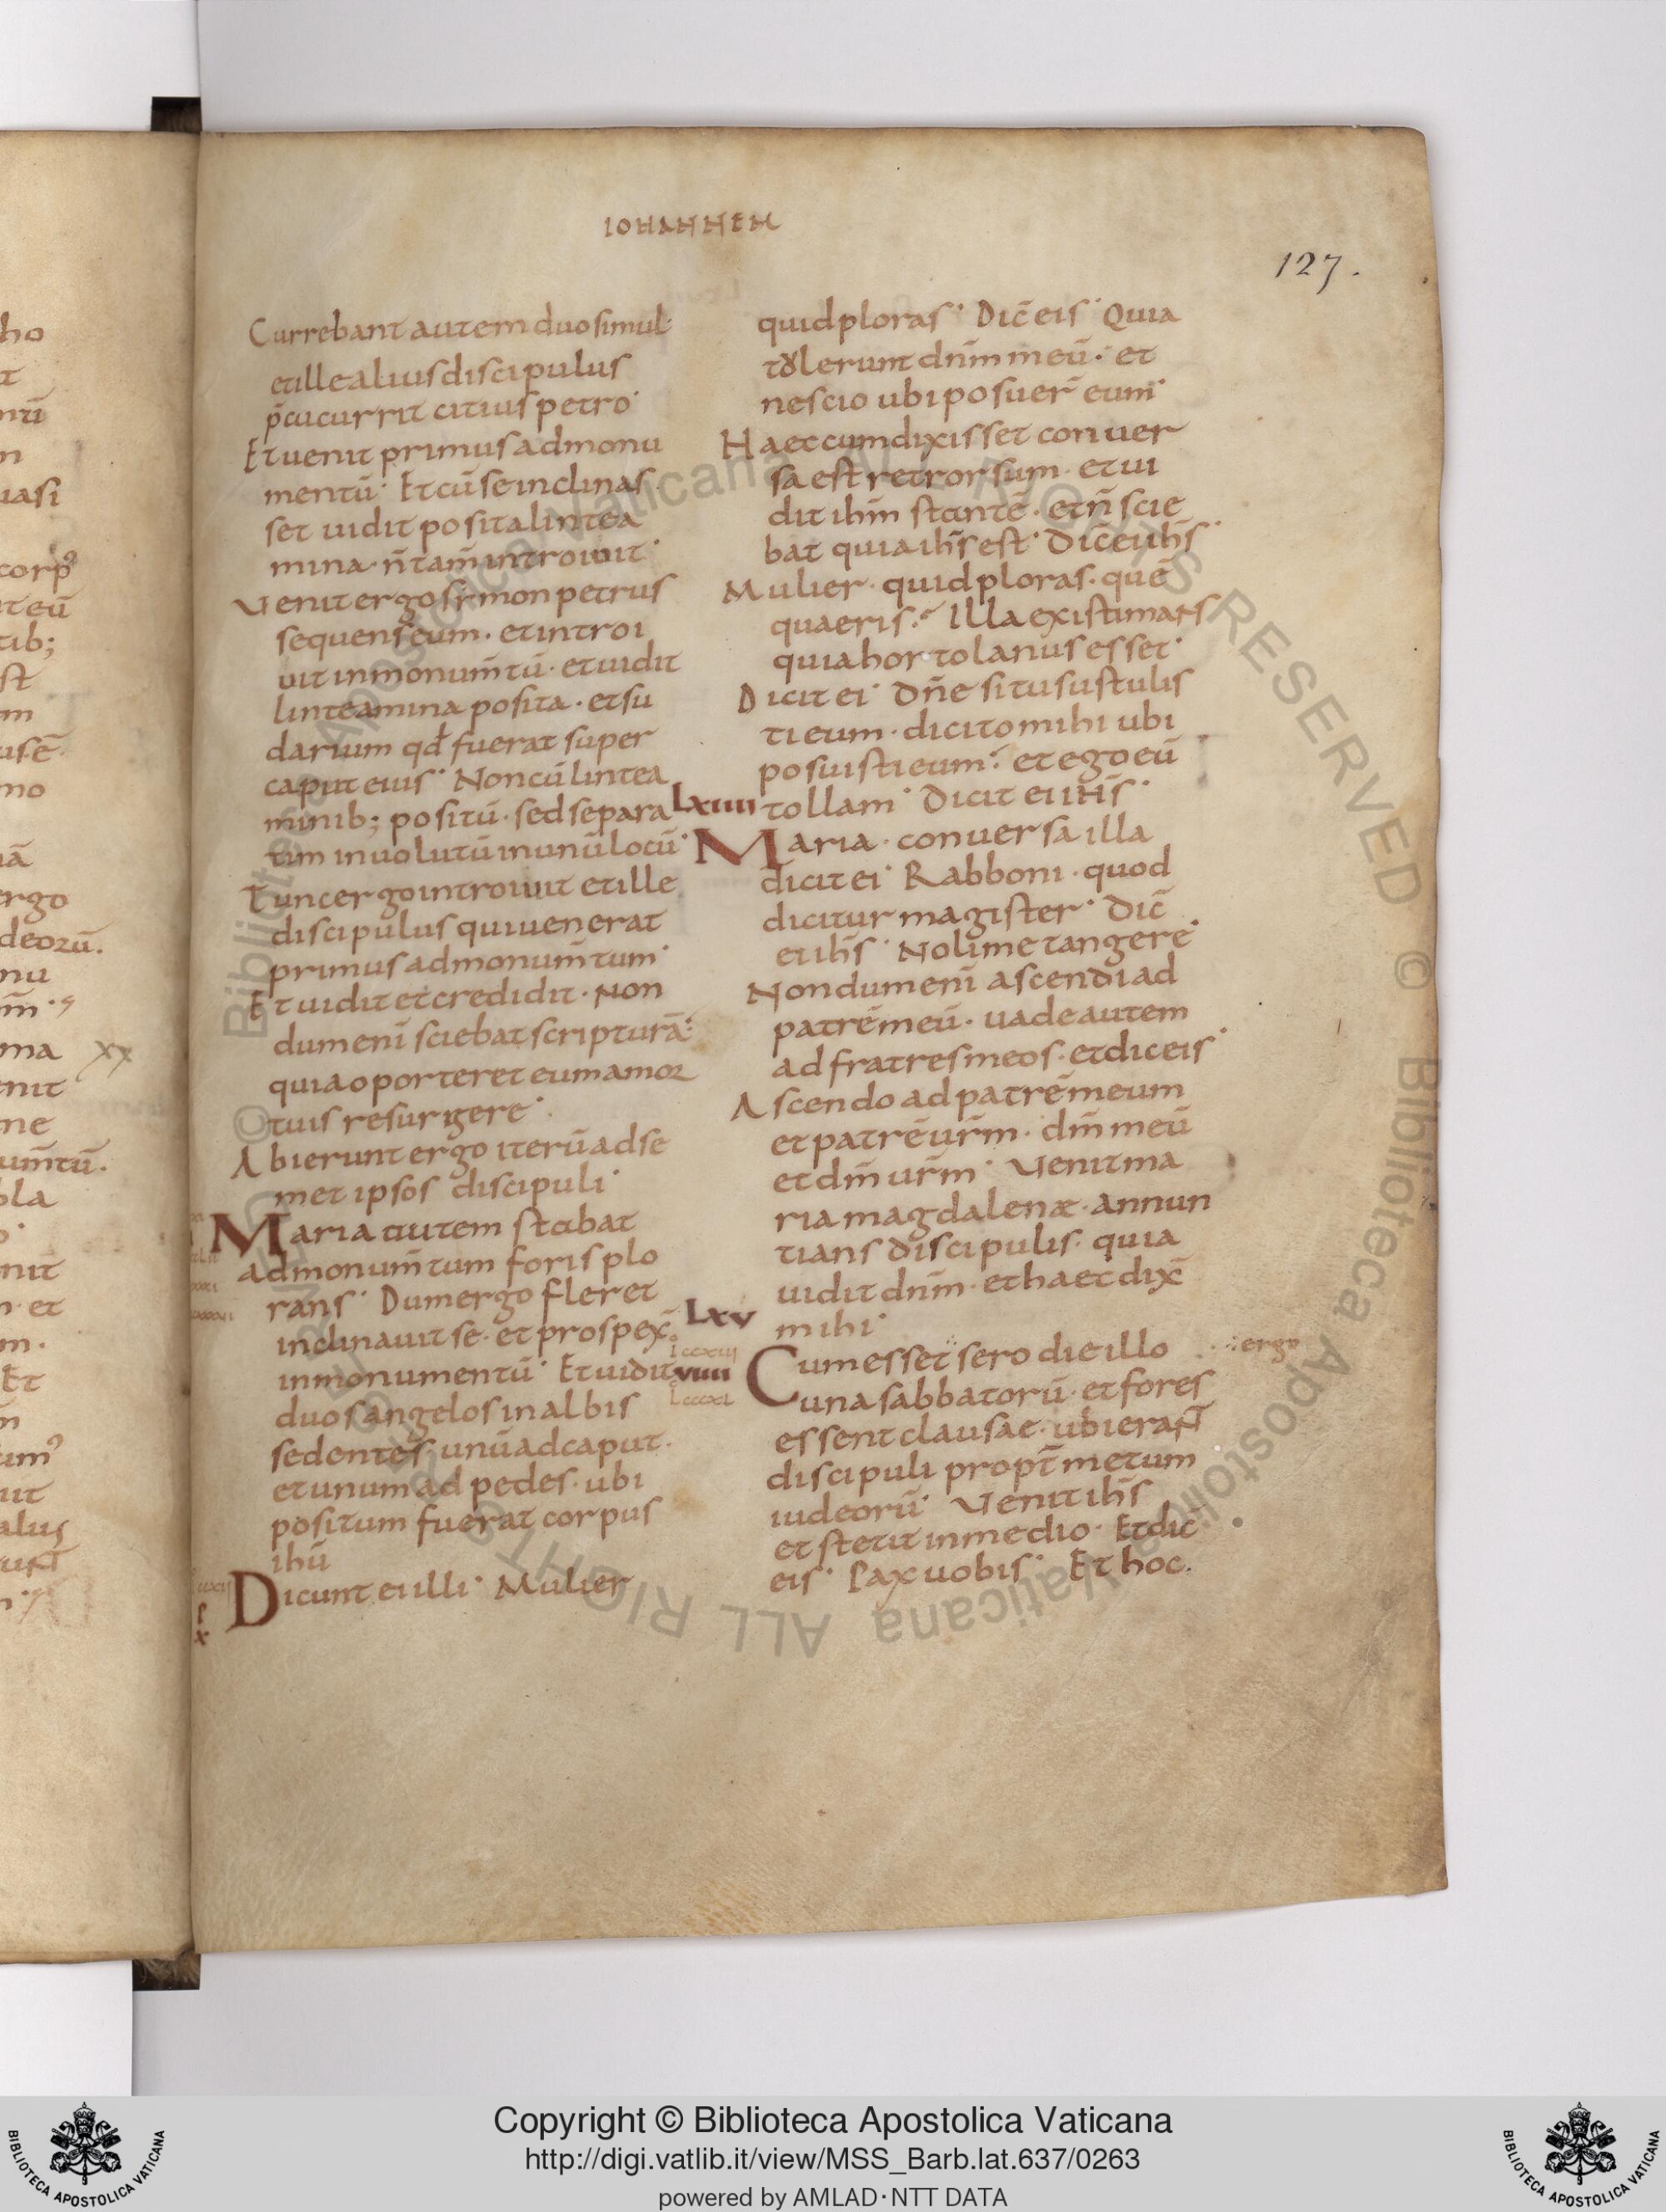 IOHANNEM
127.
Currebant autem duo simul·
et ille alius discipulus
p̄cucurrit citius petro·
Et uenit primus ad monu
mentū· Et cū se inclinas
set uidit posita lintea
mina· n̄ tam̄ introiuit·
Uenit ergo simon petrus
sequens eum· et introi
uit in monum̄tū· et uidit
linteamina posita· et su
darium qd̄ fuerat super
caput eius· Non cū lintea
minib; positū· sed separa
tim inuolutū in unū locū·
Tunc ergo introiuit et ille
discipulus qui uenerat
primus ad monum̄tum·
Et uidit et credidit· Non
dum enī sciebat scripturā·
quia oporteret eum a mor
tuis resurgere·
Abierunt ergo iterū ad se
met ipsos discipuli·
Maria autem stabat
ad monum̄tum foris plo
rans· Dum ergo fleret
inclinauit se· et prospex̄
in monumentū· Et uidit
duos angelos in albis
sedentes· unū ad caput·
et unum ad pedes· ubi
positum fuerat corpus
ihū
Dicunt ei illi· Mulier
quid ploras· Dic̄ eis· Quia
tulerunt dnm̄ meū· et
nescio ubi posuer̄ eum·
Haec cum dixisset conuer
sa est retrorsum· et ui
dit ihm̄ stantē· et n̄ scie
bat quia ihs̄ est· Dic̄ ei ihs̄·
Mulier· quid ploras· quē
quaeris· Illa existimans
quia hortolanus esset·
Dicit ei· Dn̄e si tu sustulis
ti eum· dicito mihi ubi
posuisti eum· et ego eū
LXIIII tollam· Dicit ei ihs̄·
Maria· conuersa illa
dicit ei· Rabboni· quod
dicitur magister· Dic̄
ei ihs̄· Noli me tangere·
Nondum enī ascendi ad
patrē meū· uade autem
ad fratres meos· et dic eis·
Ascendo ad patrē meum
et patrē ur̄m· dm̄ meū
et dm̄ ur̄m· Uenit ma
ria magdalenae· annun
tians discipulis· quia
uidit dnm̄· et haec dix̄
LXV mihi·
Cum esset sero die illo ergo
VIIII una sabbatorū· et fores
essent clausae· ubi erant
discipuli propt̄ metum
iudeorū· Uenit ihs̄
et stetit in medio· Et dic̄
eis· Pax uobis· Et hoc·
Copyright © Biblioteca Apostolica Vaticana
http://digi.vatlib.it/view/MSS_Barb.lat.637/0263
powered by AMLAD·NTT DATA
BIBLIOTECA APOSTOLICA VATICANA
BIBLIOTECA APOSTOLICA VATICANA
© Biblioteca Apostolica Vaticana ALL RIGHTS RESERVED © Biblioteca Apostolica Vaticana ALL RIGHTS RESERVED